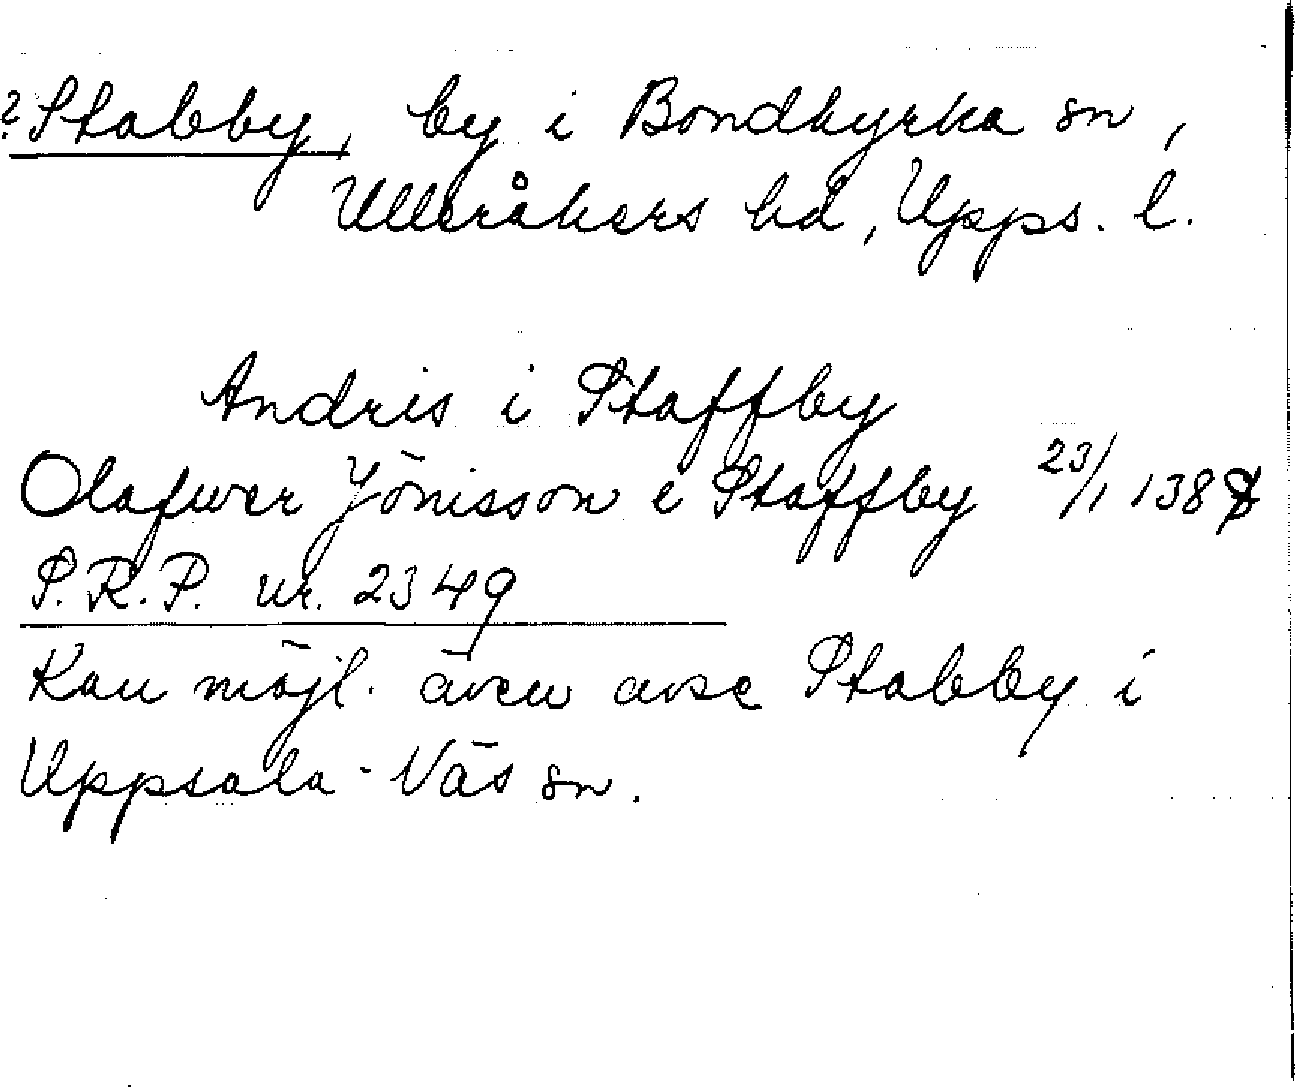 ? Stabby, by i Bondkyrka sn,
Ulleråkers hd, Upps. l.
Andris i Staffby
Olafwer Jönisson i Staffby 23/1
S.R.P. nr. 2349
Kan möjl. även avse Stabby i
Uppsala-Näs sn.